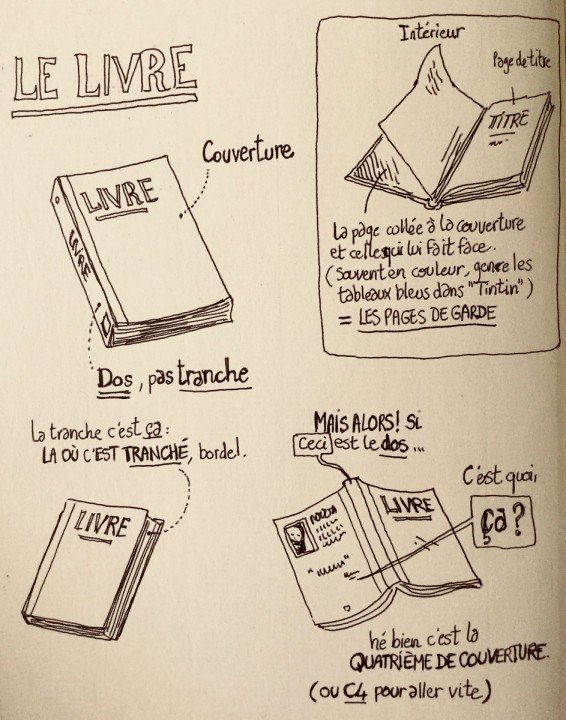 LE LIVRE
Couverture
LIVRE
LIVRE
Dos, pas tranche
Intérieur
Page de titre
TITRE
La page collée à la couverture
et celle qui lui fait face.
(Souvent en couleur, genre les
tableaux bleus dans "Tintin")
= LES PAGES DE GARDE
La tranche c'est ça :
LA OÙ C'EST TRANCHÉ, bordel.
LIVRE
MAIS ALORS! Si
Ceci est le dos...
C'est quoi,
ça?
LIVRE
hé bien c'est la
QUATRIÈME DE COUVERTURE.
(ou C4 pour aller vite)